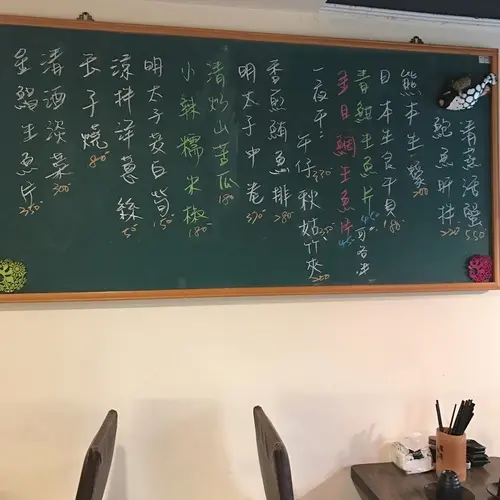 清蒸活蟹 550
鮑魚涼拌 220
熊本生蠔 200
日本生食干貝 180
青魽生魚片 450 可各半
金目鯛生魚片 450
一夜干：午仔 370 秋姑 350 竹夾 200
香魚 鯖魚排 280
明太子中卷 370
清炒山苦瓜 180
小辣糯米椒 180
明太子茭白筍 150
涼拌洋蔥絲 50
玉子燒 80
清酒淡菜 300
星鰻生魚片 350